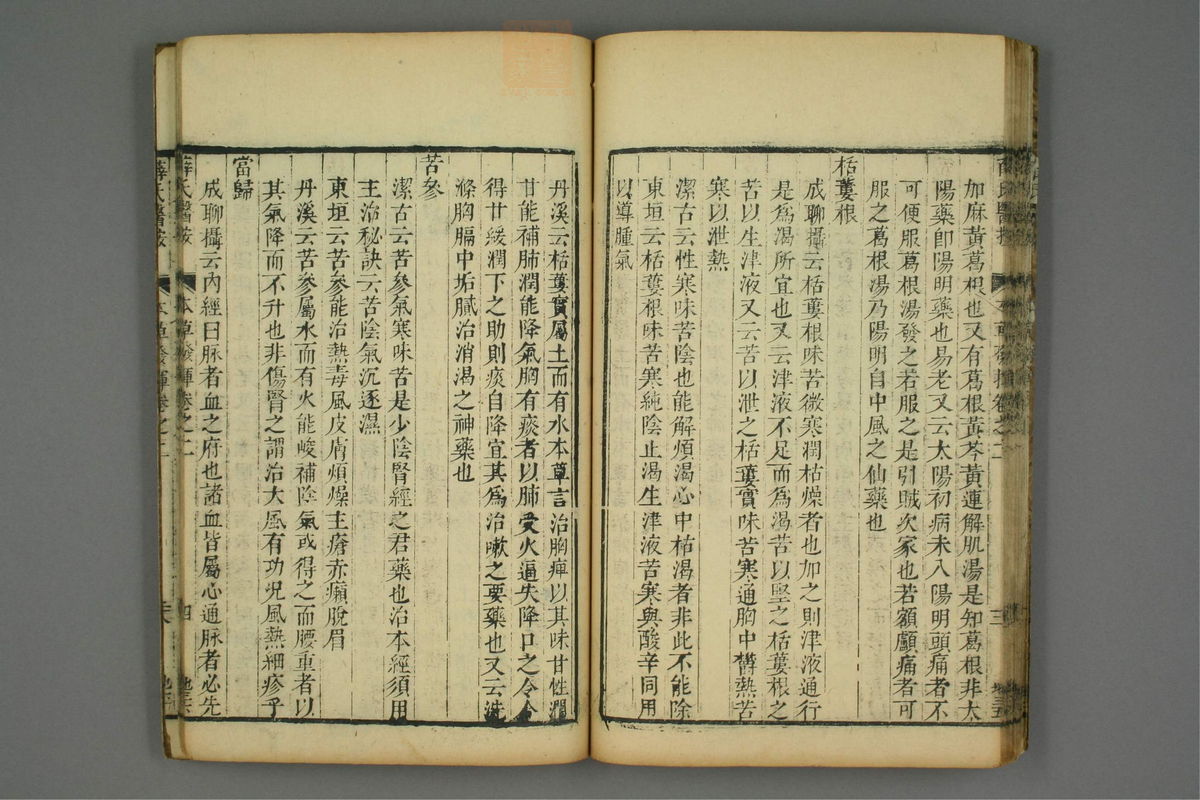 加麻黃葛根也又有葛根黃芩黃連解肌湯是知葛根非太
陽藥卽陽明藥也易老又云太陽初病未入陽明頭痛者不
可便服葛根湯發之若服之是引賊次家也若額顱痛者可
服之葛根湯乃陽明自中風之仙藥也
栝蔞根
成聊攝云栝蔞根味苦微寒潤枯燥者也加之則津液通行
是爲渴所宜也又云津液不足而爲渴苦以堅之栝蔞根之
苦以生津液又云苦以泄之栝蔞實味苦寒通胸中欝熱苦
寒以泄熱
潔古云性寒味苦陰也能解煩渴心中枯渴者非此不能除
東垣云栝蔞根味苦寒純陰止渴生津液苦寒與酸辛同用
以導腫氣
丹溪云栝蔞實屬土而有水本草言治胸痺以其味甘性潤
甘能補肺潤能降氣胸有痰者以肺受火逼失降口之令今
得甘緩潤下之助則痰自降宜其爲治嗽之要藥也又云洗
滌胸膈中垢膩治消渴之神藥也
苦參
潔古云苦參氣寒味苦是少陰腎經之君藥也治本經須用
主治秘訣云苦陰氣沉逐濕
東垣云苦參能治熱毒風皮膚煩燥主瘡赤癩脫眉
丹溪云苦參屬水而有火能峻補陰氣或得之而腰重者以
其氣降而不升也非傷腎之謂治大風有功况風熱細疹乎
當歸
成聊攝云內經曰脉者血之府也諸血皆屬心通脉者必先
薛氏醫按 本草發揮卷之二 四